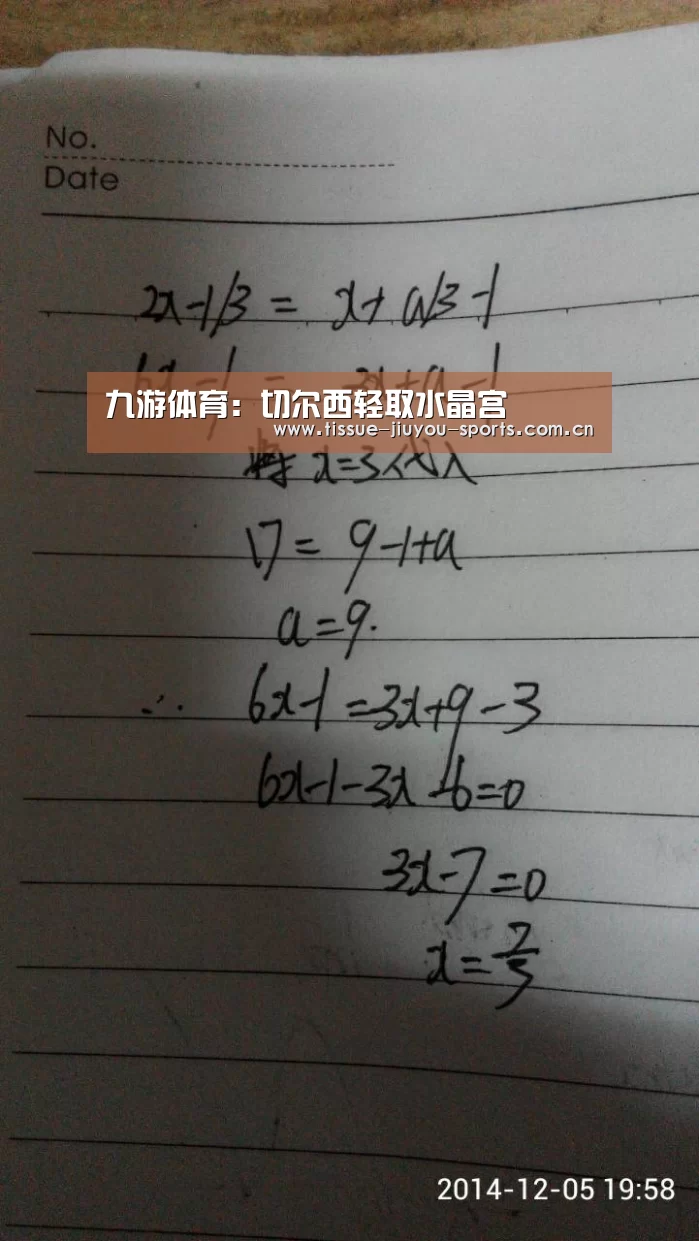 No.
Date
2x-1/3 = x+a/3-1
6x-1 = 3x+a-1
九游体育：切尔西轻取水晶宫
www.tissue-jiuyou-sports.com.cn
将 x=3代入
17= 9-1+a
a=9.
∴ 6x-1=3x+9-3
6x-1-3x-6=0
3x-7=0
x=7/3
2014-12-05 19:58